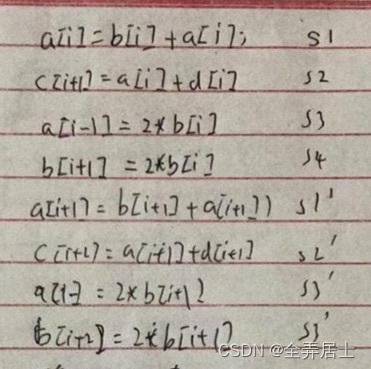 a[i] = b[i] + a[i]; S1
c[i+1] = a[i] + d[i] S2
a[i-1] = 2*b[i] S3
b[i+1] = 2*b[i] S4
a[i+1] = b[i+1] + a[i+1]) S1'
c[i+2] = a[i+1] + d[i+1] S2'
= 2*b[i+1] S3'
b[i+2] = 2*b[i+1] S3'
CSDN @全弄居士